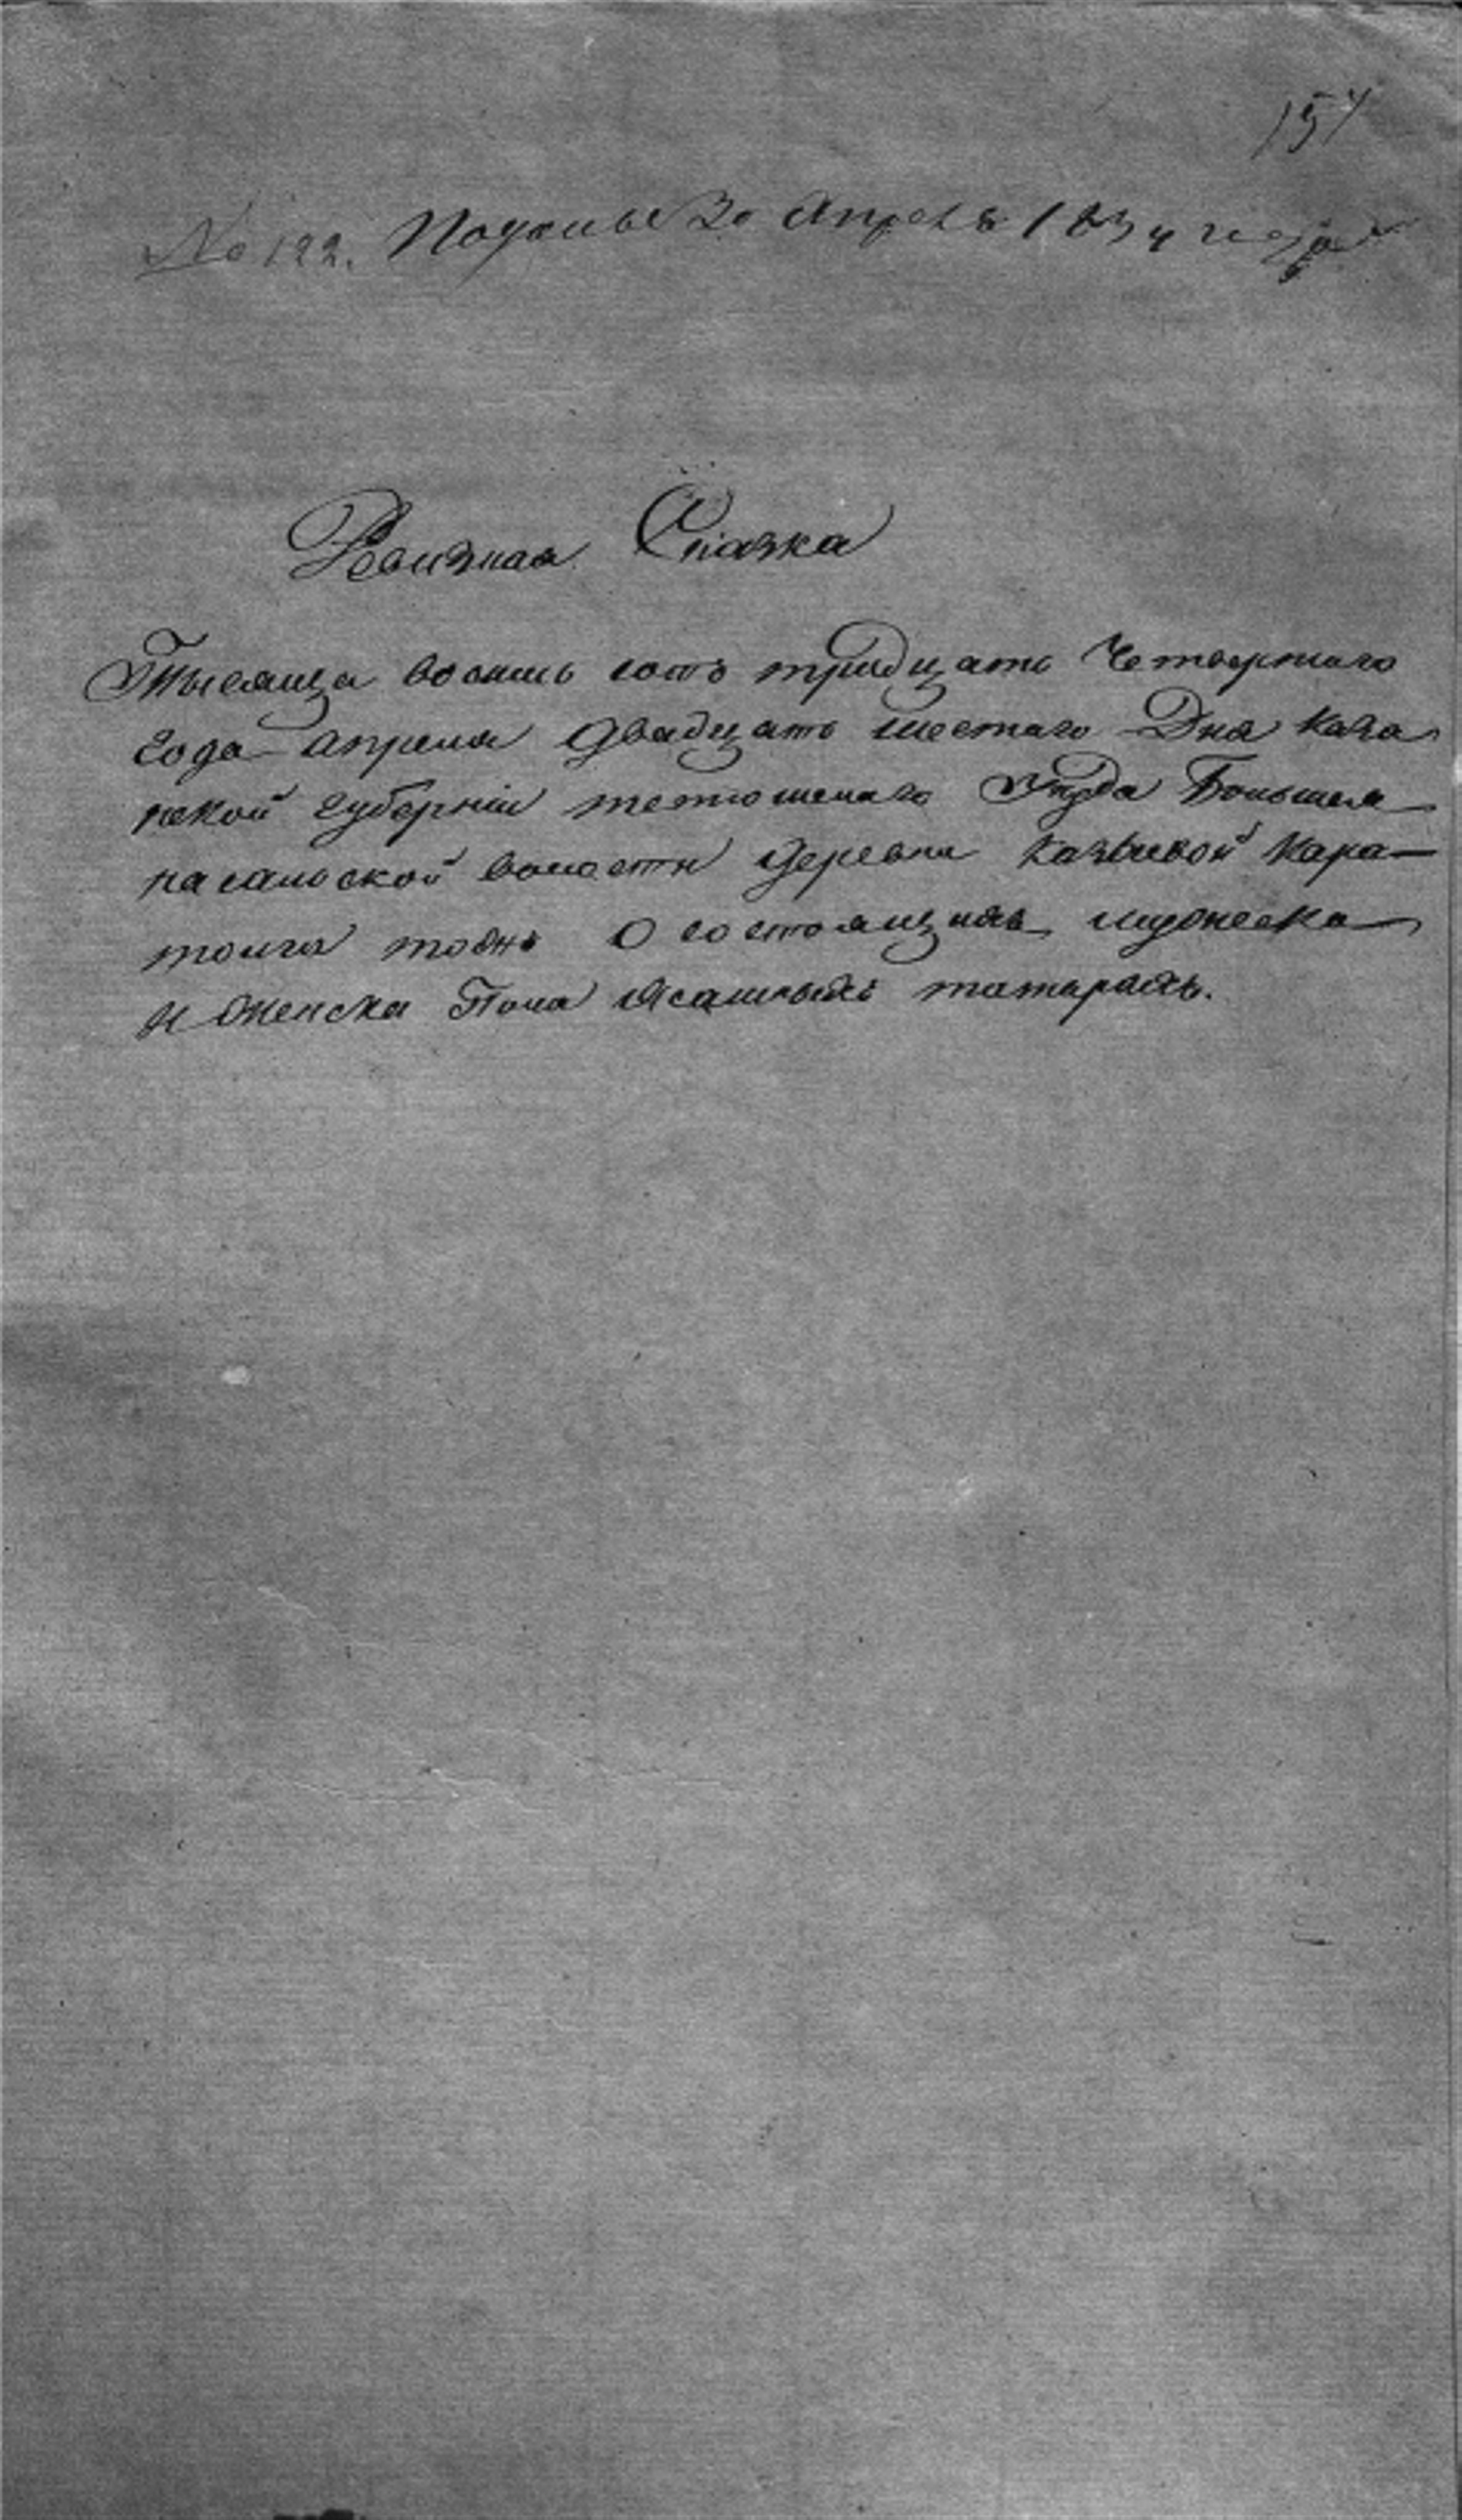 154
№ 122. Подана 30 Апреля 1834 года
Ревизкая Сказка
Тысяща восемь сотъ тридцать четвертаго
года апреля двадцать шестаго Дня каза
нской губерніи тетюшскаго уезда Больше
волости деревни Кара—
тоига тожъ О состоящихъ мужеска
и женска Пола Ясашныхъ татарахъ.